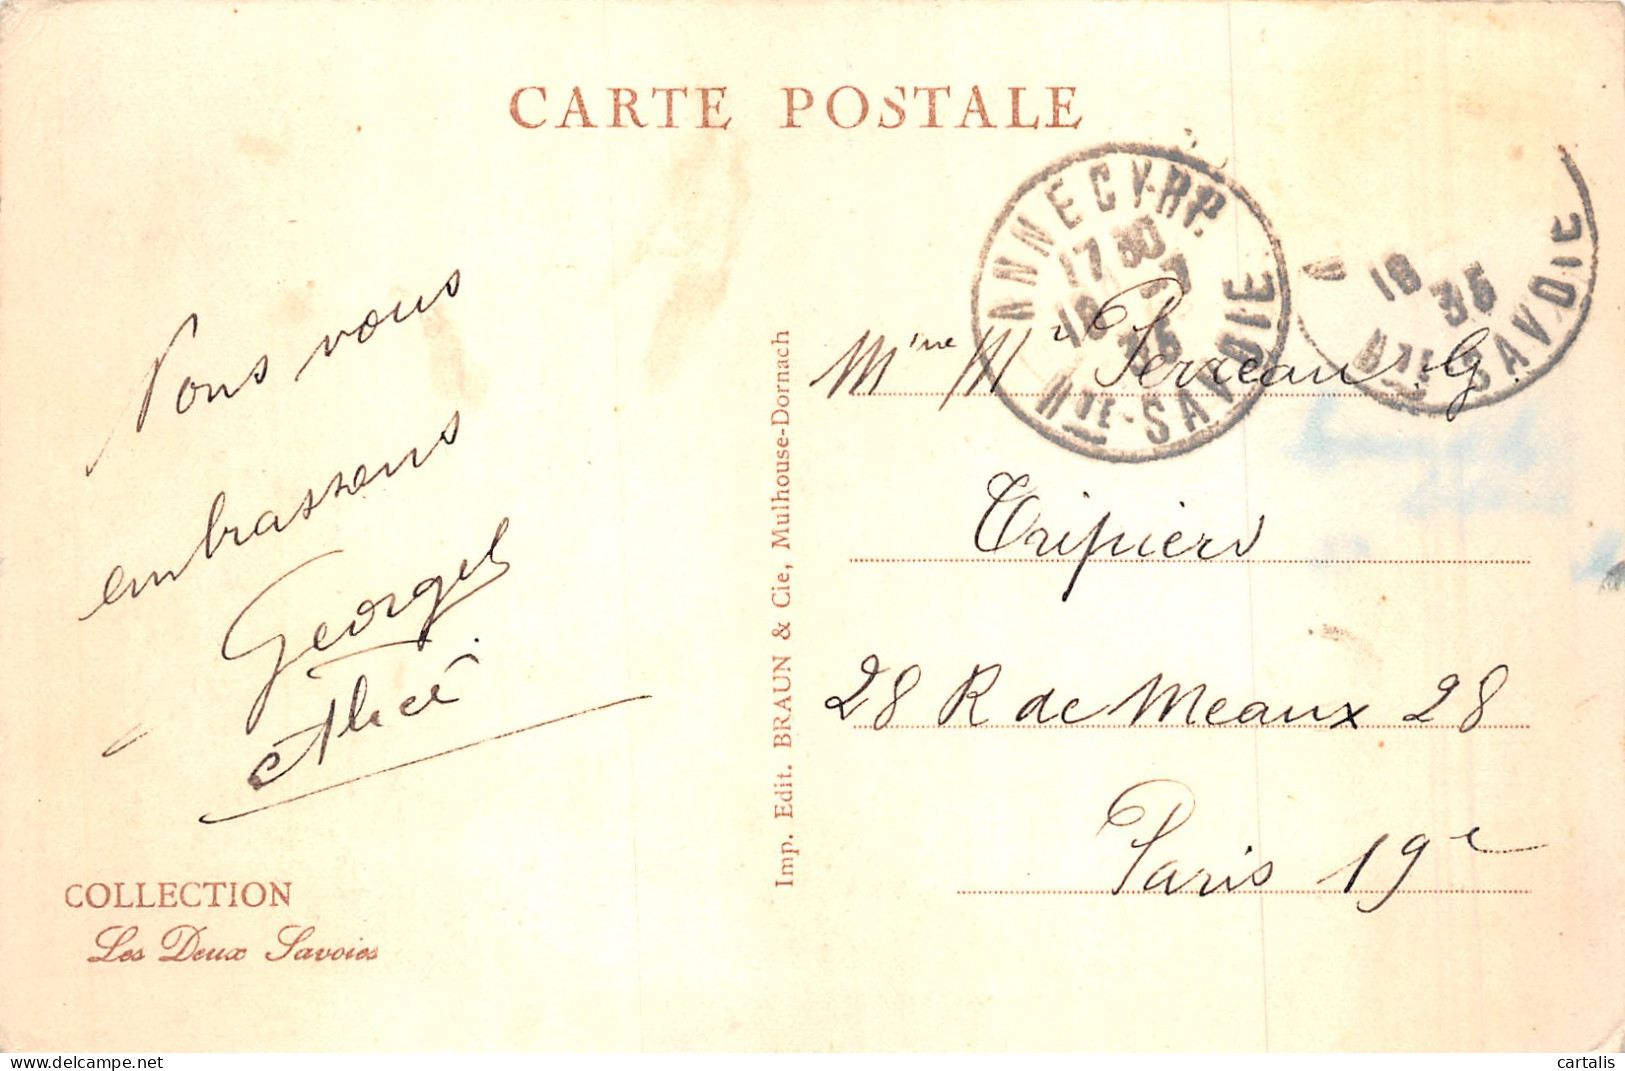 CARTE POSTALE
ANNECY-RP.
17 30
18 -7
35
HTE-SAVOIE
18
35
HTE-SAVOIE
Nous vous
embrassons
Georges
et Alice
Mme Mr Perreau. G.
Tripier
28 R de Meaux 28
Paris 19e
Imp. Edit. BRAUN & Cie, Mulhouse-Dornach
COLLECTION
Les Deux Savoies
cartalis